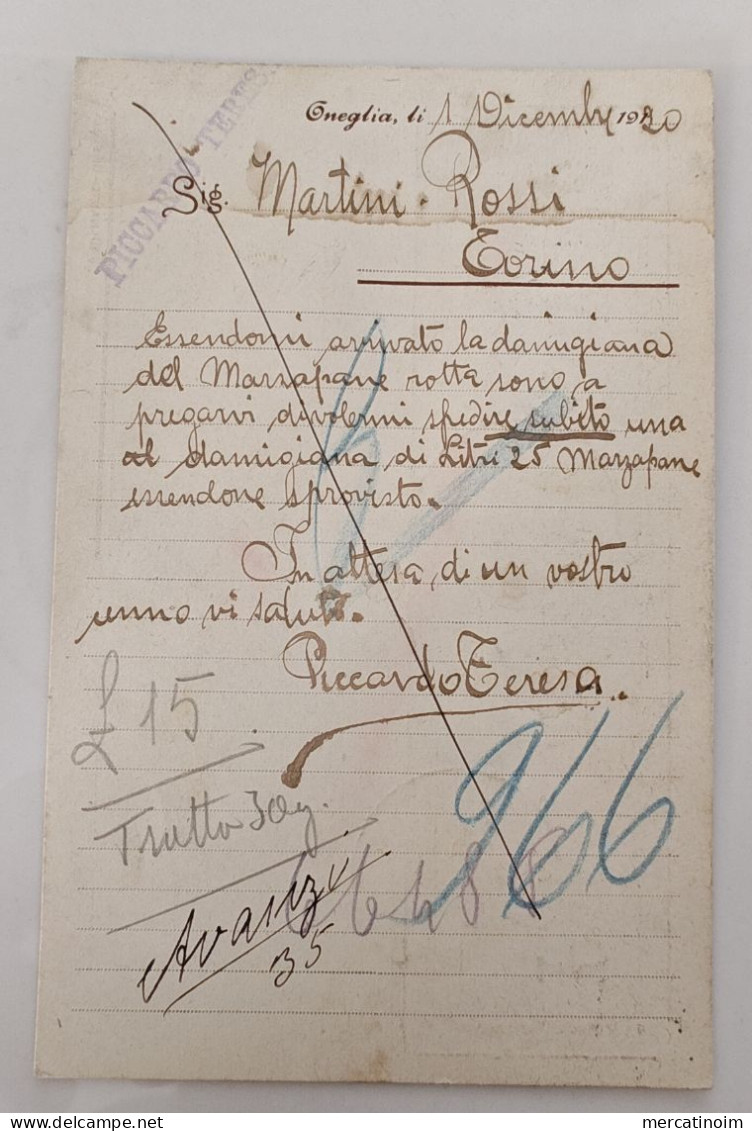 PICCARDO TERES
Oneglia, li 1 Dicembre 1920
Sig. Martini - Rossi
Torino
Essendomi arrivato la damigiana
del Marzapane rotta sono a
pregarvi di volermi spedire subito una
al damigiana di Litri 25 Marzapane
essendone sprovisto.
In attesa, di un vostro
unno vi saluto.
Piccardo Teresa
£ 15
Tratta 30 g.
966
Avanzo
35
mercatinoim